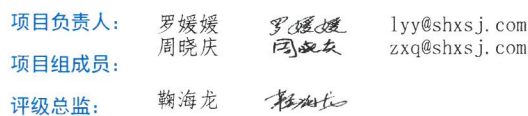 项目负责人： 罗媛媛 罗媛媛 lyy@shxsj.com
周晓庆 周晓庆 zxq@shxsj.com
项目组成员：
评级总监： 鞠海龙 鞠海龙